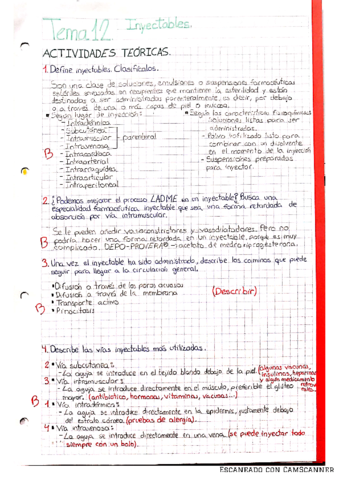 Tema 12 Inyectables.
ACTIVIDADES TEÓRICAS.
1. Define inyectables. Clasifícalos.
Son una clase de soluciones, emulsiones o suspensiones farmacéuticas
estériles envasadas en recipientes que mantienen la esterilidad y están
destinadas a ser administradas parenteralmente, es decir, por debajo
o a través de una o más capas de piel o mucosa.
• Según lugar de inyección:
- Intradérmica
- Subcutánea
- Intramuscular
- Intravenosa
- Intracardiaca
- Intraarterial
- Intrarraquídea
- Intraarticular
- Intraperitoneal
parenteral
• Según las características fisicoquímicas
- Soluciones listas para ser
administradas.
- Polvo liofilizado listo para
combinar con un disolvente
en el momento de la inyección
- Suspensiones preparadas
para inyectar.
B
2. ¿Podemos mejorar el proceso LADME en un inyectable? Busca una
especialidad farmacéutica inyectable que sea una forma retardada de
absorción por vía intramuscular.
Se le pueden añadir vasoconstrictores y vasodilatadores. Pero no
podría hacer una forma retardada en un inyectable, porque es muy
complicado. DEPO-PROVERA® - acetato de medroxiprogesterona.
B
3. Una vez el inyectable ha sido administrado, describe los caminos que puede
seguir para llegar a la circulación general.
• Difusión a través de los poros acuosos
• Difusión a través de la membrana
• Transporte activo
• Pinocitosis
(Describir)
B
4. Describe las vías inyectables más utilizadas.
2 • Vía subcutánea:
- La aguja se introduce en el tejido blando debajo de la piel (algunas vacunas,
insulinas, heparinas
y algún medicamento
3 • Vía intramuscular:
- La aguja se introduce directamente en el músculo, preferible el glúteo
mayor. (antibiótico, hormonas, vitaminas, vacunas...)
B
1 • Vía intradérmica:
- La aguja se introduce directamente en la epidermis, justamente debajo
del estrato córneo (pruebas de alergia).
4 • Vía intravenosa:
- La aguja se introduce directamente en una vena. (se puede inyectar todo
siempre con un bolo).
ESCANEADO CON CAMSCANNER